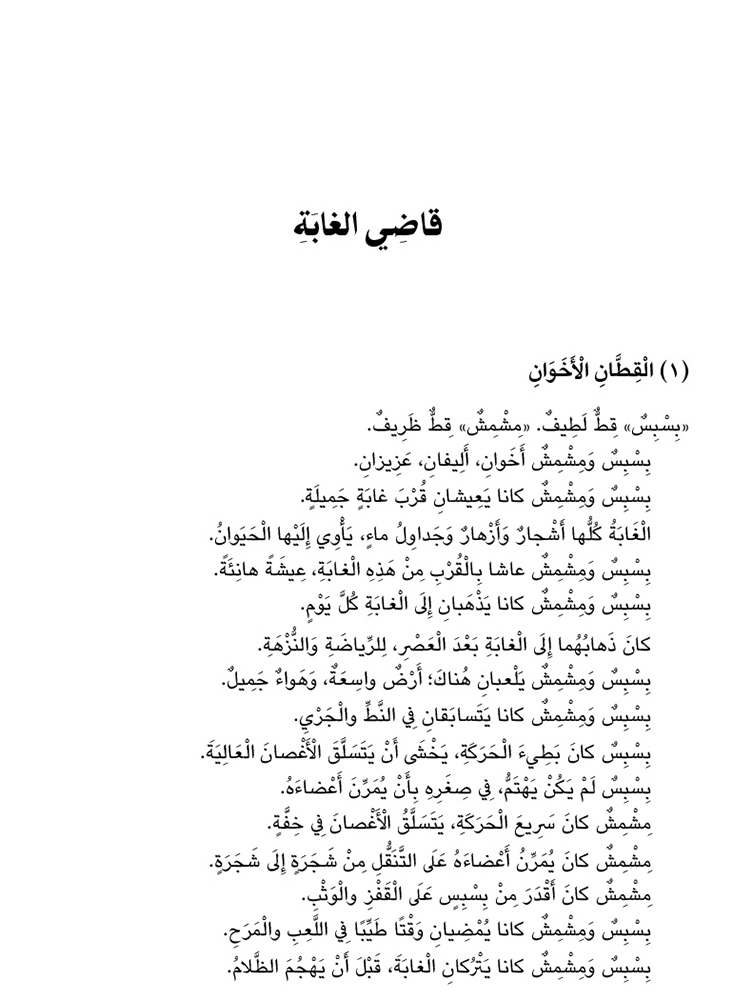 قاضِي الغابَةِ
(١) الْقِطَّانِ الْأَخَوَانِ
«بِسْبِسٌ» قِطٌّ لَطِيفٌ. «مِشْمِشٌ» قِطٌّ ظَرِيفٌ.
بِسْبِسٌ وَمِشْمِشٌ أَخَوانِ، أَلِيفانِ، عَزِيزانِ.
بِسْبِسٌ وَمِشْمِشٌ كانا يَعِيشانِ قُرْبَ غابَةٍ جَمِيلَةٍ.
الْغَابَةُ كُلُّها أَشْجارٌ وَأَزْهارٌ وَجَداوِلُ ماءٍ، يَأْوِي إِلَيْها الْحَيَوانُ.
بِسْبِسٌ وَمِشْمِشٌ عاشا بِالْقُرْبِ مِنْ هَذِهِ الْغابَةِ، عِيشَةً هانِئَةً.
بِسْبِسٌ وَمِشْمِشٌ كانا يَذْهَبانِ إِلَى الْغابَةِ كُلَّ يَوْمٍ.
كانَ ذَهابُهُما إِلَى الْغابَةِ بَعْدَ الْعَصْرِ، لِلرِّياضَةِ وَالنُّزْهَةِ.
بِسْبِسٌ وَمِشْمِشٌ يَلْعبانِ هُناكَ؛ أَرْضٌ واسِعَةٌ، وَهَواءٌ جَمِيلٌ.
بِسْبِسٌ وَمِشْمِشٌ كانا يَتَسابَقانِ فِي النَّطِّ والْجَرْيِ.
بِسْبِسٌ كانَ بَطِيءَ الْحَرَكَةِ، يَخْشَى أَنْ يَتَسَلَّقَ الْأَغْصانَ الْعَالِيَةَ.
بِسْبِسٌ لَمْ يَكُنْ يَهْتَمُّ، فِي صِغَرِهِ بِأَنْ يُمَرِّنَ أَعْضاءَهُ.
مِشْمِشٌ كانَ سَرِيعَ الْحَرَكَةِ، يَتَسَلَّقُ الْأَغْصانَ فِي خِفَّةٍ.
مِشْمِشٌ كانَ يُمَرِّنُ أَعْضاءَهُ عَلَى التَّنَقُّلِ مِنْ شَجَرَةٍ إِلَى شَجَرَةٍ.
مِشْمِشٌ كانَ أَقْدَرَ مِنْ بِسْبِسٍ عَلَى الْقَفْزِ والْوَثْبِ.
بِسْبِسٌ وَمِشْمِشٌ كانا يُمْضِيانِ وَقْتًا طَيِّبًا فِي اللَّعِبِ والْمَرَحِ.
بِسْبِسٌ وَمِشْمِشٌ كانا يَتْرُكانِ الْغابَةَ، قَبْلَ أَنْ يَهْجُمَ الظَّلامُ.